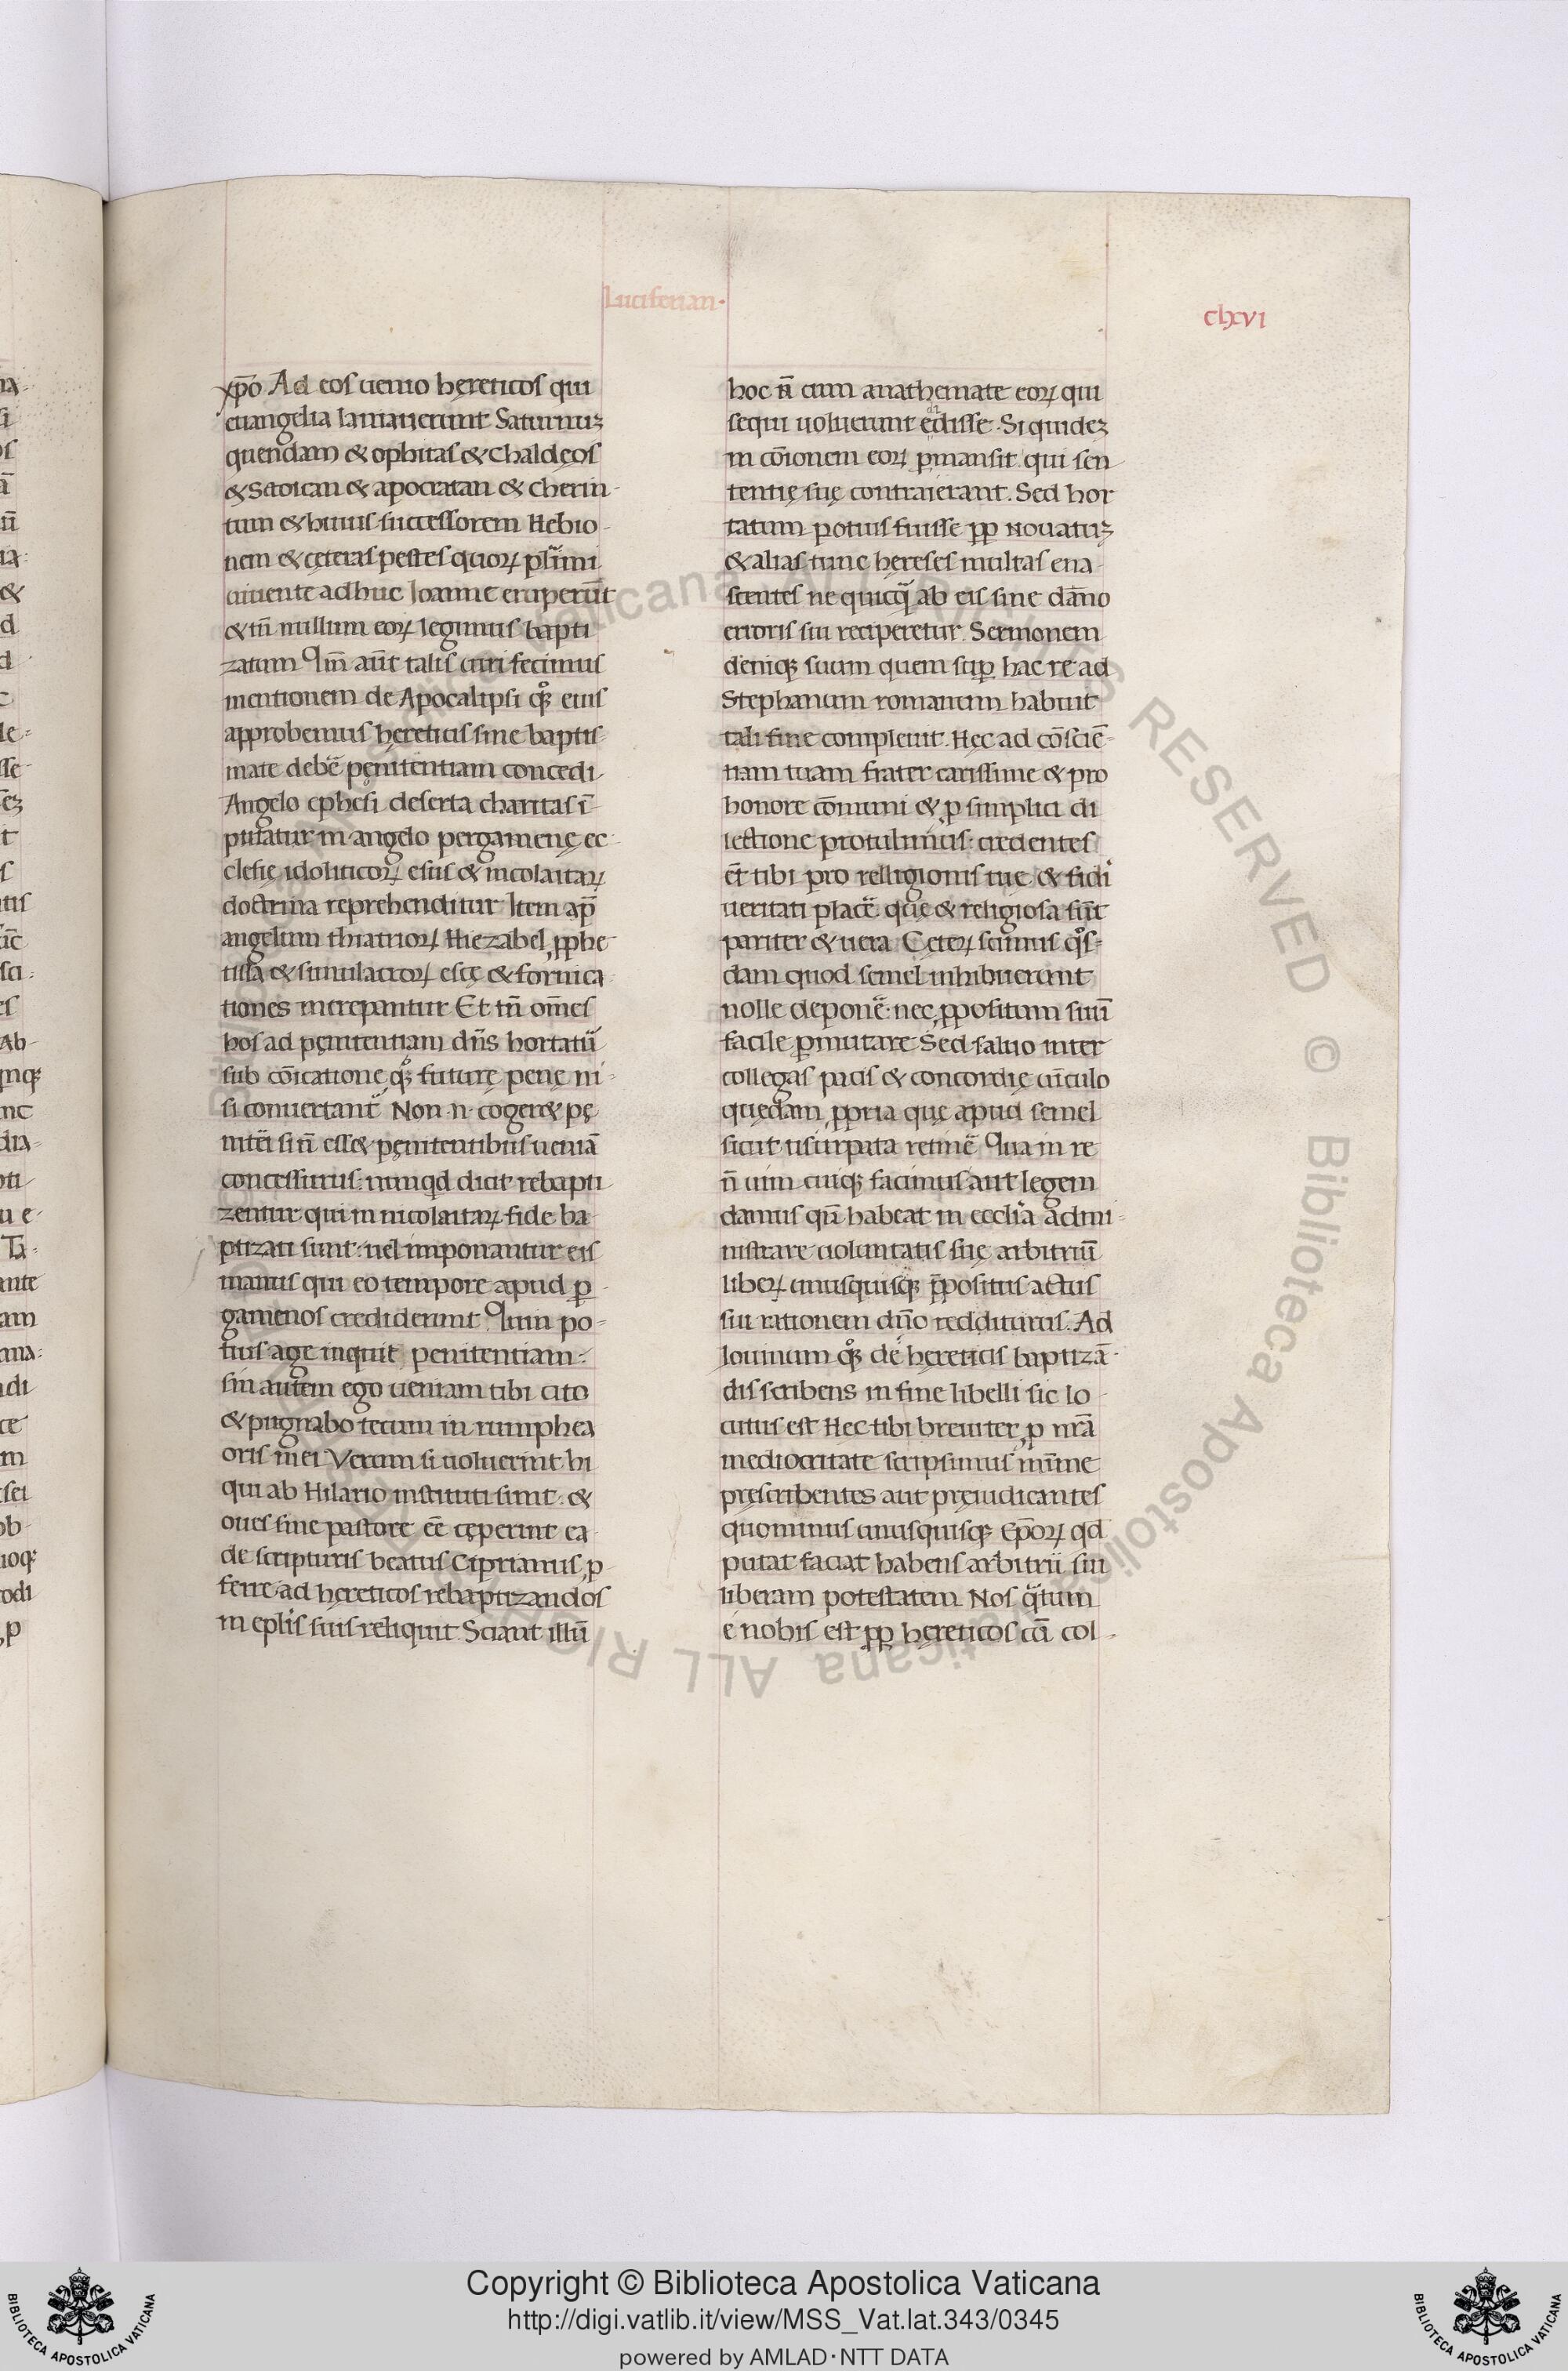 Luciferian·
clxvi
xp̄o Ad eos uenio hęreticos qui
euangelia laniauerunt Saturninuꝫ
quendam & ophitas & chaldęos
& Sctoican & apocratan & cherin-
tum & huius successorem Hebio-
nem & cęteras pestes quoꝝ plīmi
uiuente adhuc Ioanne eruperūt
& tn̄ nullum eoꝝ legimus bapti
zatum Qm̄ aūt talis uiri fecimus
mentionem de Apocalipsi qͦꝫ eius
approbemus hęreticis sine baptis-
mate debē pęnitentiam concedi
Angelo ephesi deserta charitas ī-
putatur in angelo pergamenę ec-
clesię idoliticoꝝ esus & nicolaitaꝝ
doctrina reprehenditur Item ap̄
angelum thiatrioꝝ Hiezabel ꝓphe-
tissa & simulacroꝝ escę & fornica
tiones increpantur Et tn̄ om̄es
hos ad pęnitentiam dn̄s hortatū
sub cōicatione qͦꝫ futurę penę ni-
si conuertant̄ Non ·n· coger& pę
nitēi si n̄ ess& pęnitentibus ueniā
concessurus: nunqd dicit rebapti
zentur qui in nicolaitaꝝ fide ba-
ptizati sunt: uel imponantur eis
manus qui eo tempore apud ꝑ-
gamenos crediderunt Quin po-
tius age inquit penitentiam:
sin autem ego ueniam tibi cito
& pugnabo tecum in rumphea
oris mei Verum si uoluerint hi
qui ab Hilario instituti sunt: &
oues sine pastore eē cęperint ea
de scripturis beatus Ciprianus ꝓ-
ferre ad hęreticos rebaptizandos
in epl̄is suis reliquit Sciant illū
hoc n̄ cum anathemate eoꝝ qui
sequi uoluerunt edisse. Si quideꝫ
in cōionem eoꝝ ꝑmansit qui sen-
tentię suę contraierant. Sed hor
tatum potius fuisse ꝓp Nouatuꝫ
& alias tunc hęreses multas ena-
scentes ne quicq̄ ab eis sine dāno
erroris sui reciperetur. Sermonem
deniqꝫ suum quem suꝑ hac re ad
Stephanum romanum habuit
tali fine compleuit. Hęc ad cōsciē-
tiam tuam frater carissime & pro
honore cōmuni & ꝓ simplici di
lectione protulimus: credentes
et̄ tibi pro relligionis tuę & fidi
ueritati placē: quę & religiosa sūt
pariter & uera Ceteꝝ scimus qͦs-
dam quod semel inhibuerunt
nolle deponē: nec ꝓpositum suū
facile ꝑmutare Sed saluo inter
collegas pacis & concordię uīculo
quędam ꝓpria quę apud semel
sicut usurpata retinē Qua in re
n̄ uim cuiqꝫ facimus aut legem
damus qn̄ habeat in eccl̄ia admi-
nistrare uoluntatis suę arbitriū
libeꝝ unusquisqꝫ p̄positus actus
sui rationem dn̄o redditurus. Ad
Iouinum qͦꝫ de hęreticis baptizā-
dis scribens in fine libelli sic lo-
cutus est Hęc tibi breuiter ꝓ nr̄a
mediocritate scripsimus nīmine
pręscribentes aut pręiudicantes
quominus unusquisqꝫ Ep̄oꝝ qd
putat faciat habens arbitrii sui
liberam potestatem Nos q̄tum
e nobis est ꝓp hęreticos cū col-
Copyright © Biblioteca Apostolica Vaticana
http://digi.vatlib.it/view/MSS_Vat.lat.343/0345
powered by AMLAD·NTT DATA